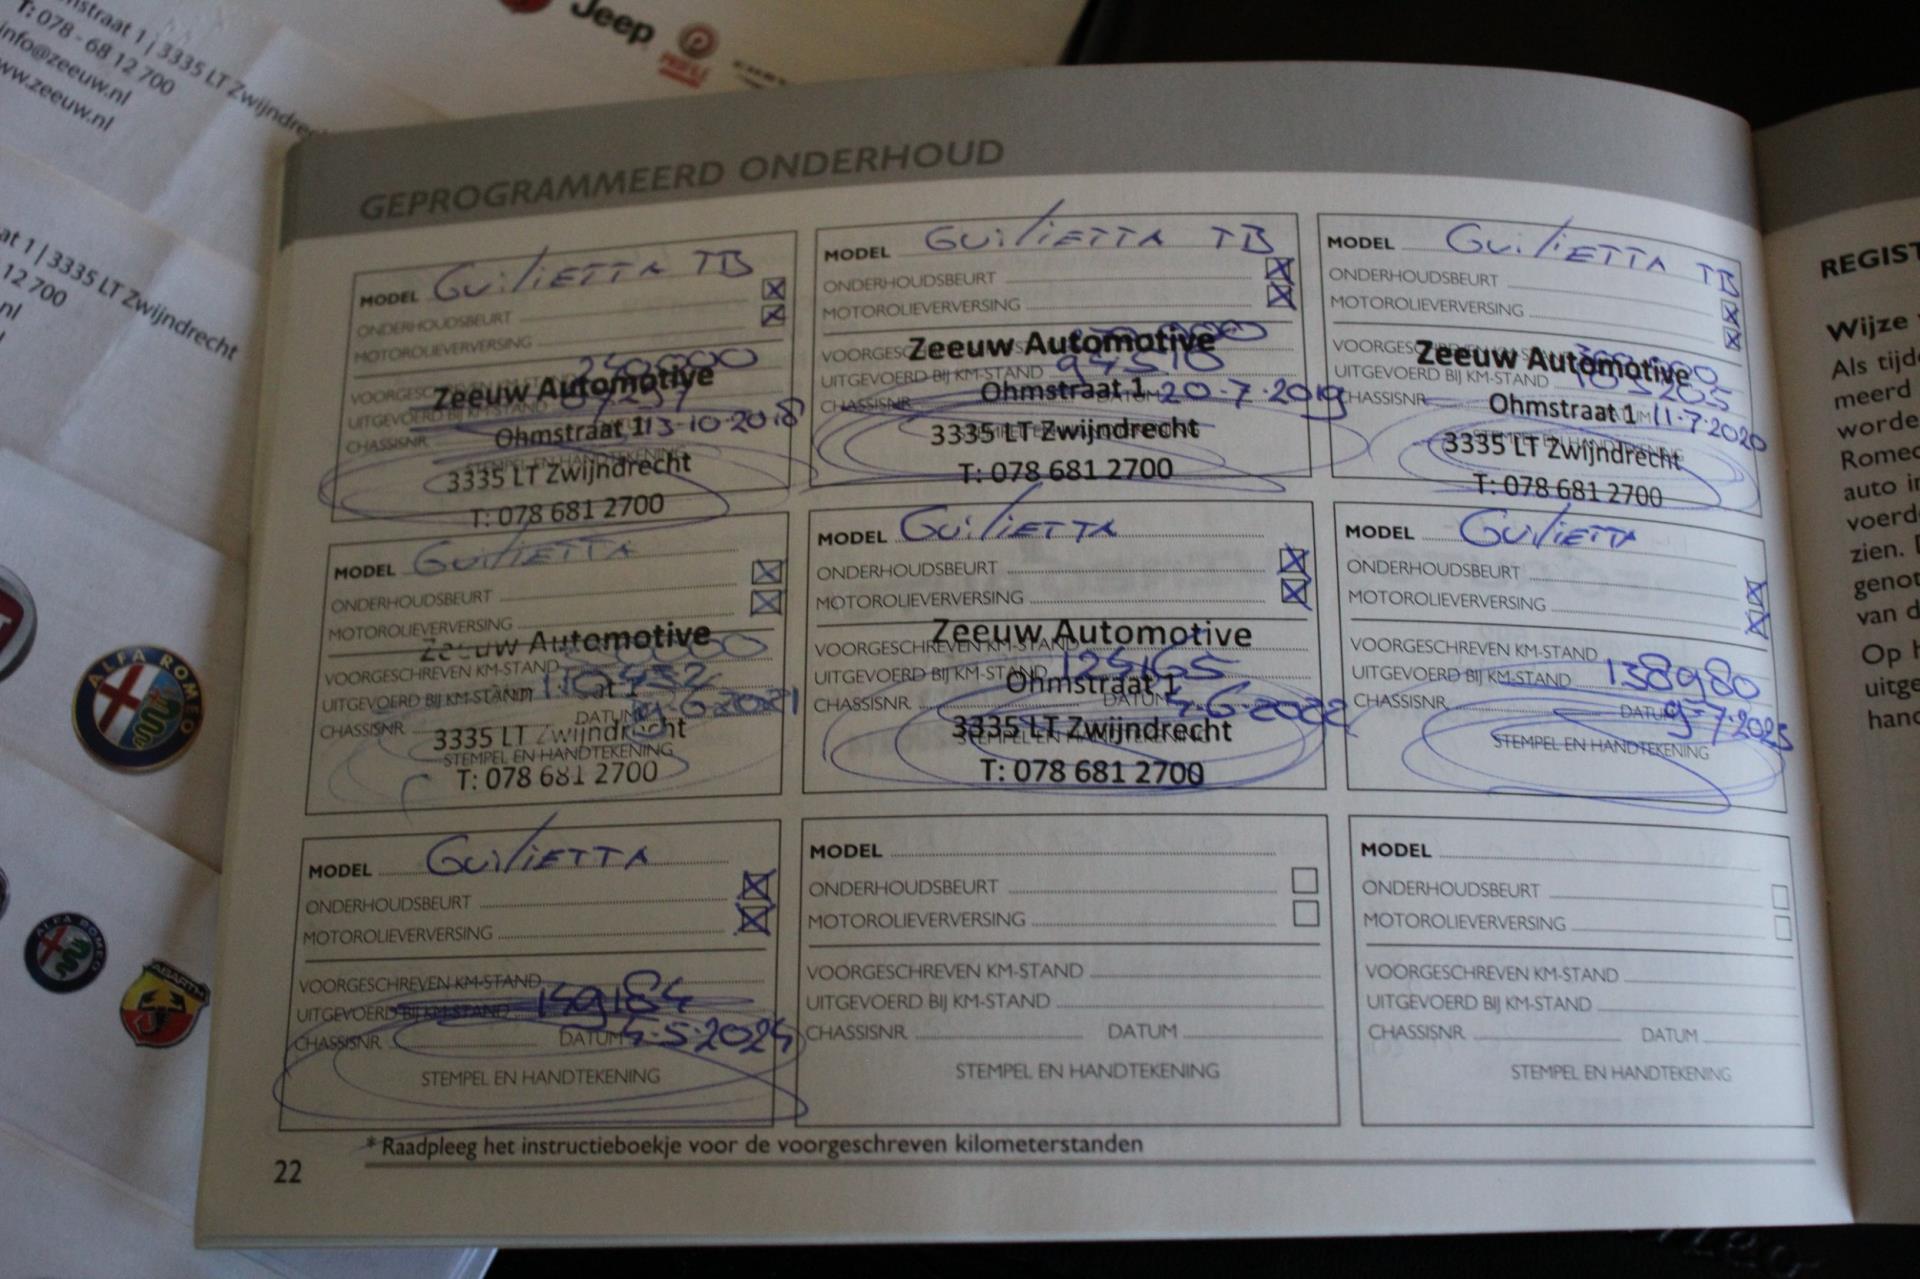 nstraat 1 | 3335 LT Zwijndrec
T: 078 - 68 12 700
info@zeeuw.nl
www.zeeuw.nl
Jeep
at 1 | 3335 LT Zwijndrecht
12 700
.nl
ALFA ROMEO
ALFA ROMEO
ABARTH
GEPROGRAMMEERD ONDERHOUD
MODEL GUiliETTA TB
ONDERHOUDSBEURT
MOTOROLIEVERVERSING
VOORGESCHREVEN KM-STAND 240000
UITGEVOERD BIJ KM-STAND
CHASSISNR 13-10-2018
Zeeuw Automotive
Ohmstraat 1
3335 LT Zwijndrecht
T: 078 681 2700
MODEL GUiliETTA TB
ONDERHOUDSBEURT
MOTOROLIEVERVERSING
UITGEVOERD BIJ KM-STAND 94510
CHASSISNR DATUM 20-7-2019
Zeeuw Automotive
Ohmstraat 1
3335 LT Zwijndrecht
T: 078 681 2700
MODEL GUiliETTA TB
ONDERHOUDSBEURT
MOTOROLIEVERVERSING
UITGEVOERD BIJ KM-STAND 103205
CHASSISNR 11-7-2020
Zeeuw Automotive
Ohmstraat 1
3335 LT Zwijndrecht
T: 078 681 2700
MODEL GUiliETTA
ONDERHOUDSBEURT
MOTOROLIEVERVERSING
VOORGESCHREVEN KM-STAND
UITGEVOERD BIJ KM-STAND 110452
CHASSISNR DATUM
STEMPEL EN HANDTEKENING
Zeeuw Automotive
3335 LT Zwijndrecht
T: 078 681 2700
MODEL GUiliETTA
ONDERHOUDSBEURT
MOTOROLIEVERVERSING
VOORGESCHREVEN KM-STAND
UITGEVOERD BIJ KM-STAND 125165
CHASSISNR DATUM 4-6-2022
Zeeuw Automotive
Ohmstraat 1
3335 LT Zwijndrecht
T: 078 681 2700
MODEL GUiliETTA
ONDERHOUDSBEURT
MOTOROLIEVERVERSING
VOORGESCHREVEN KM-STAND
UITGEVOERD BIJ KM-STAND 138980
CHASSISNR DATUM
STEMPEL EN HANDTEKENING
MODEL GUiliETTA
ONDERHOUDSBEURT
MOTOROLIEVERVERSING
VOORGESCHREVEN KM-STAND
UITGEVOERD BIJ KM-STAND 149184
CHASSISNR DATUM 4-5-2024
STEMPEL EN HANDTEKENING
MODEL
ONDERHOUDSBEURT
MOTOROLIEVERVERSING
VOORGESCHREVEN KM-STAND
UITGEVOERD BIJ KM-STAND
CHASSISNR DATUM
STEMPEL EN HANDTEKENING
MODEL
ONDERHOUDSBEURT
MOTOROLIEVERVERSING
VOORGESCHREVEN KM-STAND
UITGEVOERD BIJ KM-STAND
CHASSISNR DATUM
STEMPEL EN HANDTEKENING
* Raadpleeg het instructieboekje voor de voorgeschreven kilometerstanden
22
REGIST
Wijze
Als tijd
meerd
worde
Romeo
auto in
voerde
zien.
genot
van d
Op h
uitge
hand